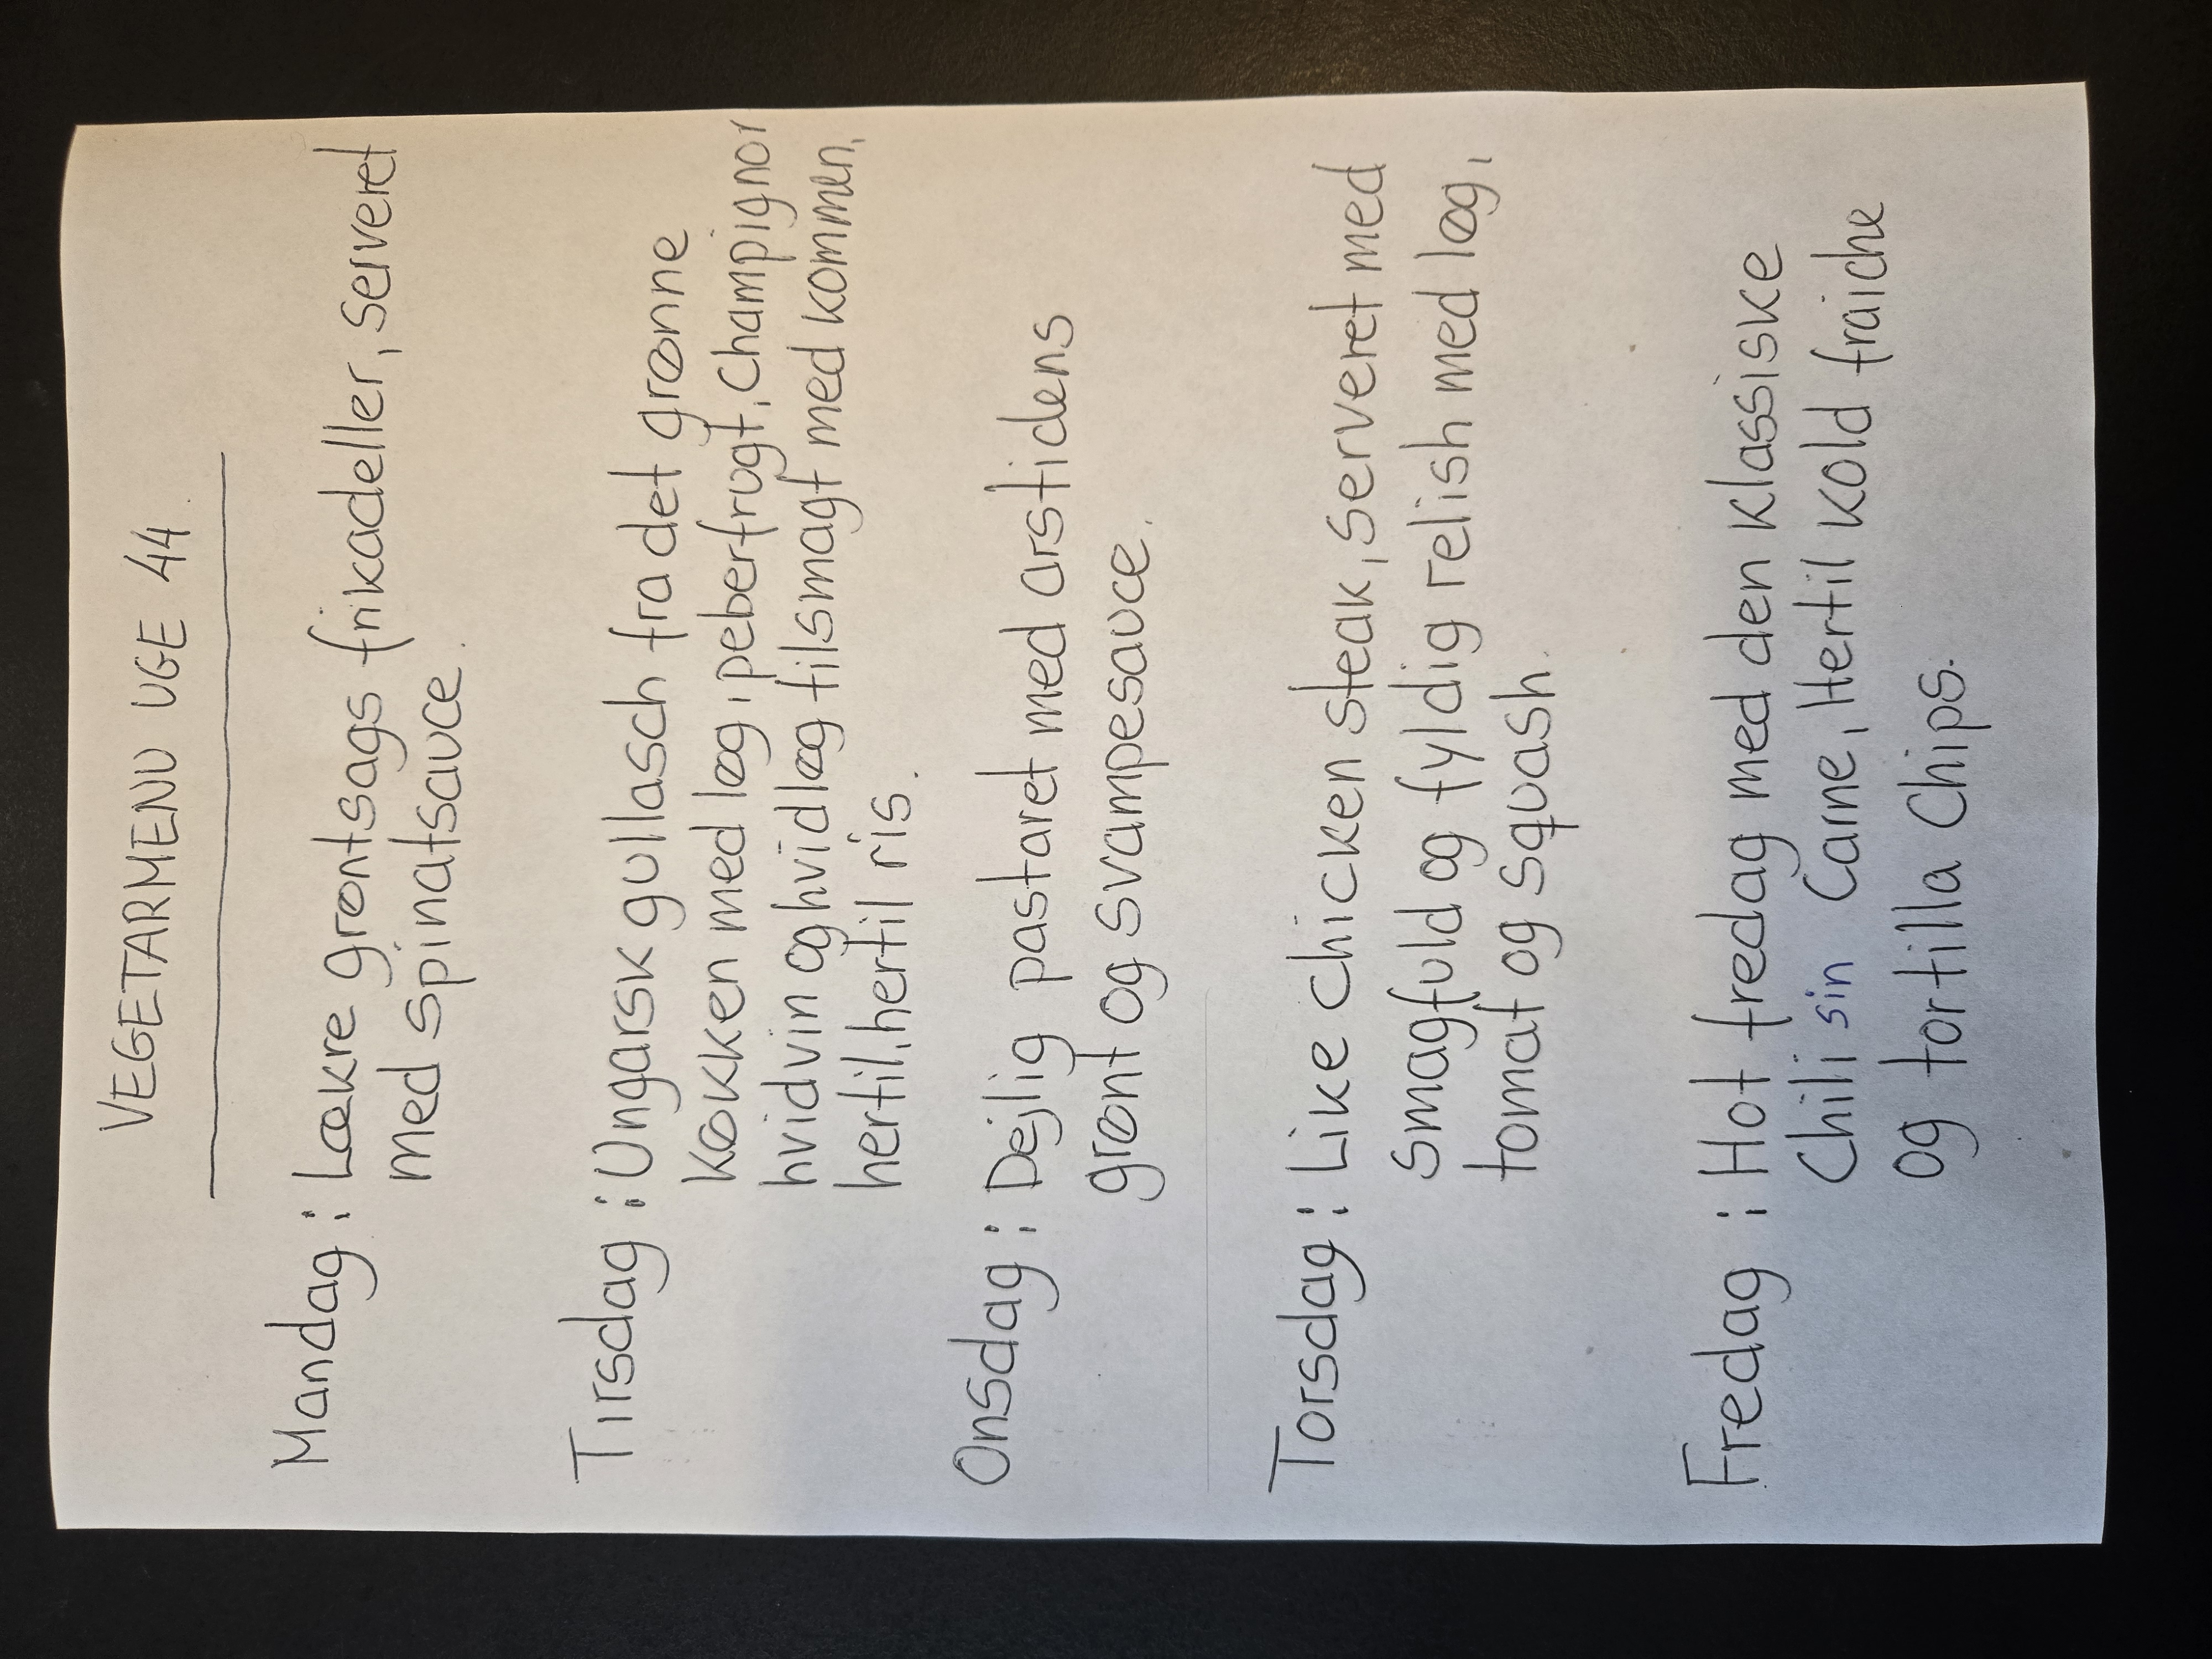 VEGETARMENU UGE 44.
Mandag: Lækre grøntsags frikadeller, serveret
med spinatsauce.
Tirsdag: Ungarsk gullasch fra det grønne
køkken med løg, peberfrugt, champignor
hvidvin og hvidløg tilsmagt med kommen,
hertil, hertil ris.
Onsdag: Dejlig pastaret med arstidens
grønt og svampesauce.
Torsdag: Like chicken steak, serveret med
smagfuld og fyldig relish med løg,
tomat og squash.
Fredag: Hot fredag med den klassiske
Chili sin Carne, Hertil kold fraiche
og tortilla Chips.